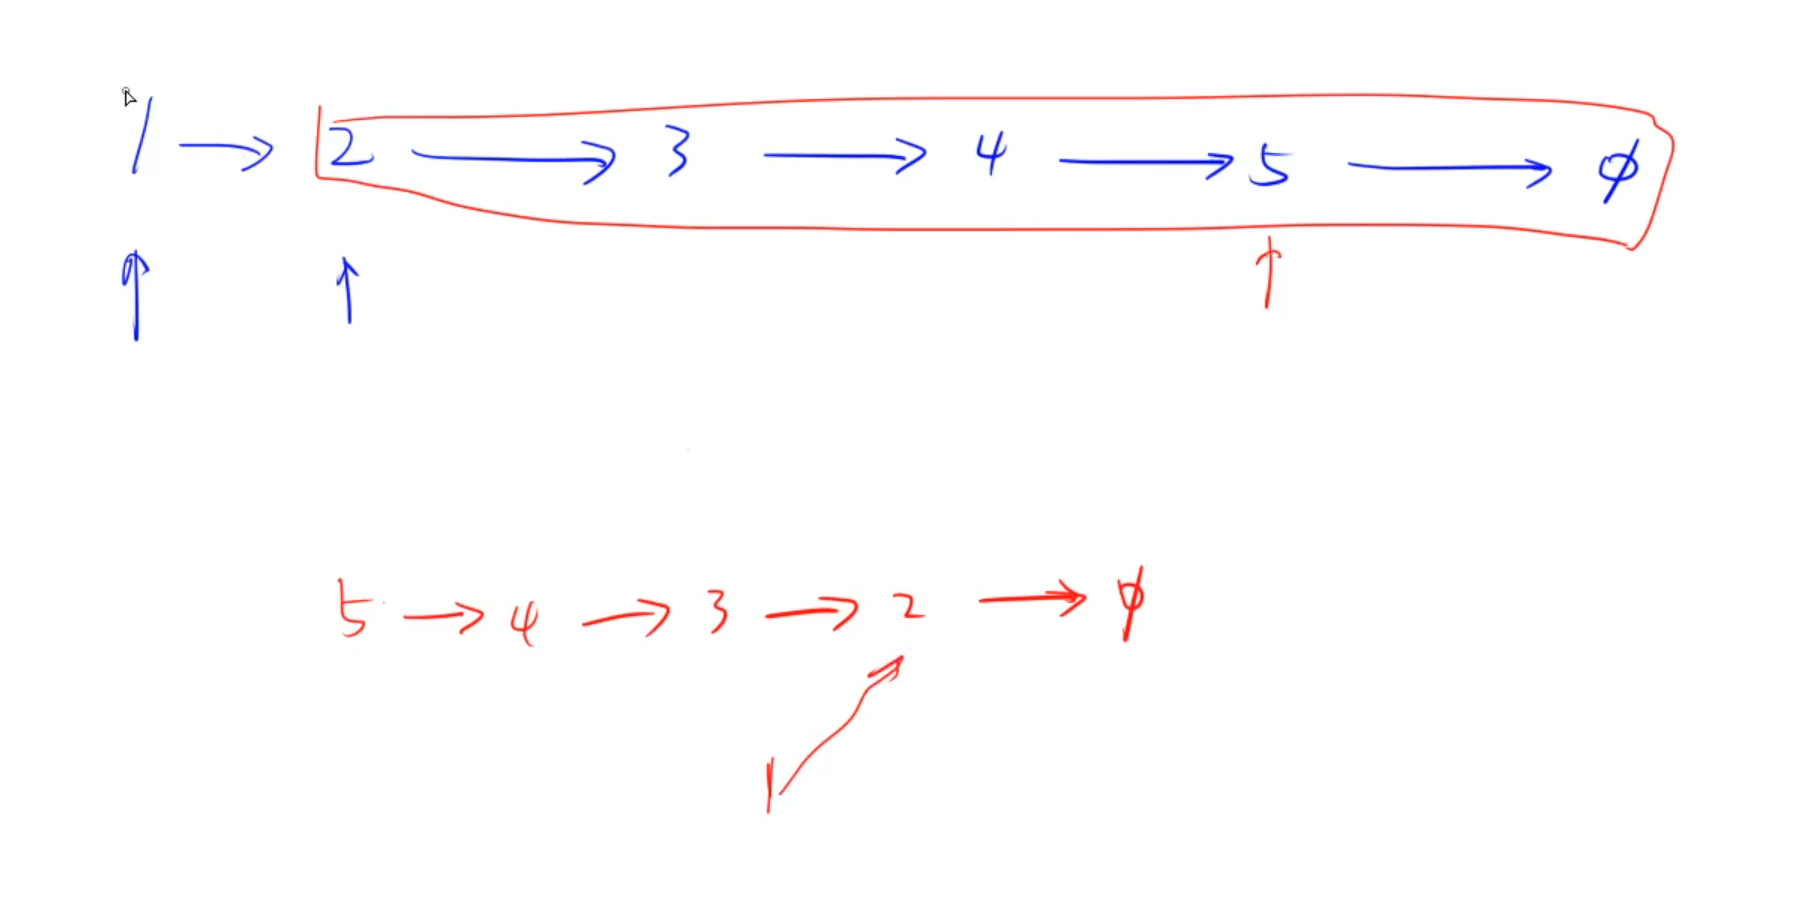 1 → 2 → 3 → 4 → 5 → φ
5 → 4 → 3 → 2 → φ
1